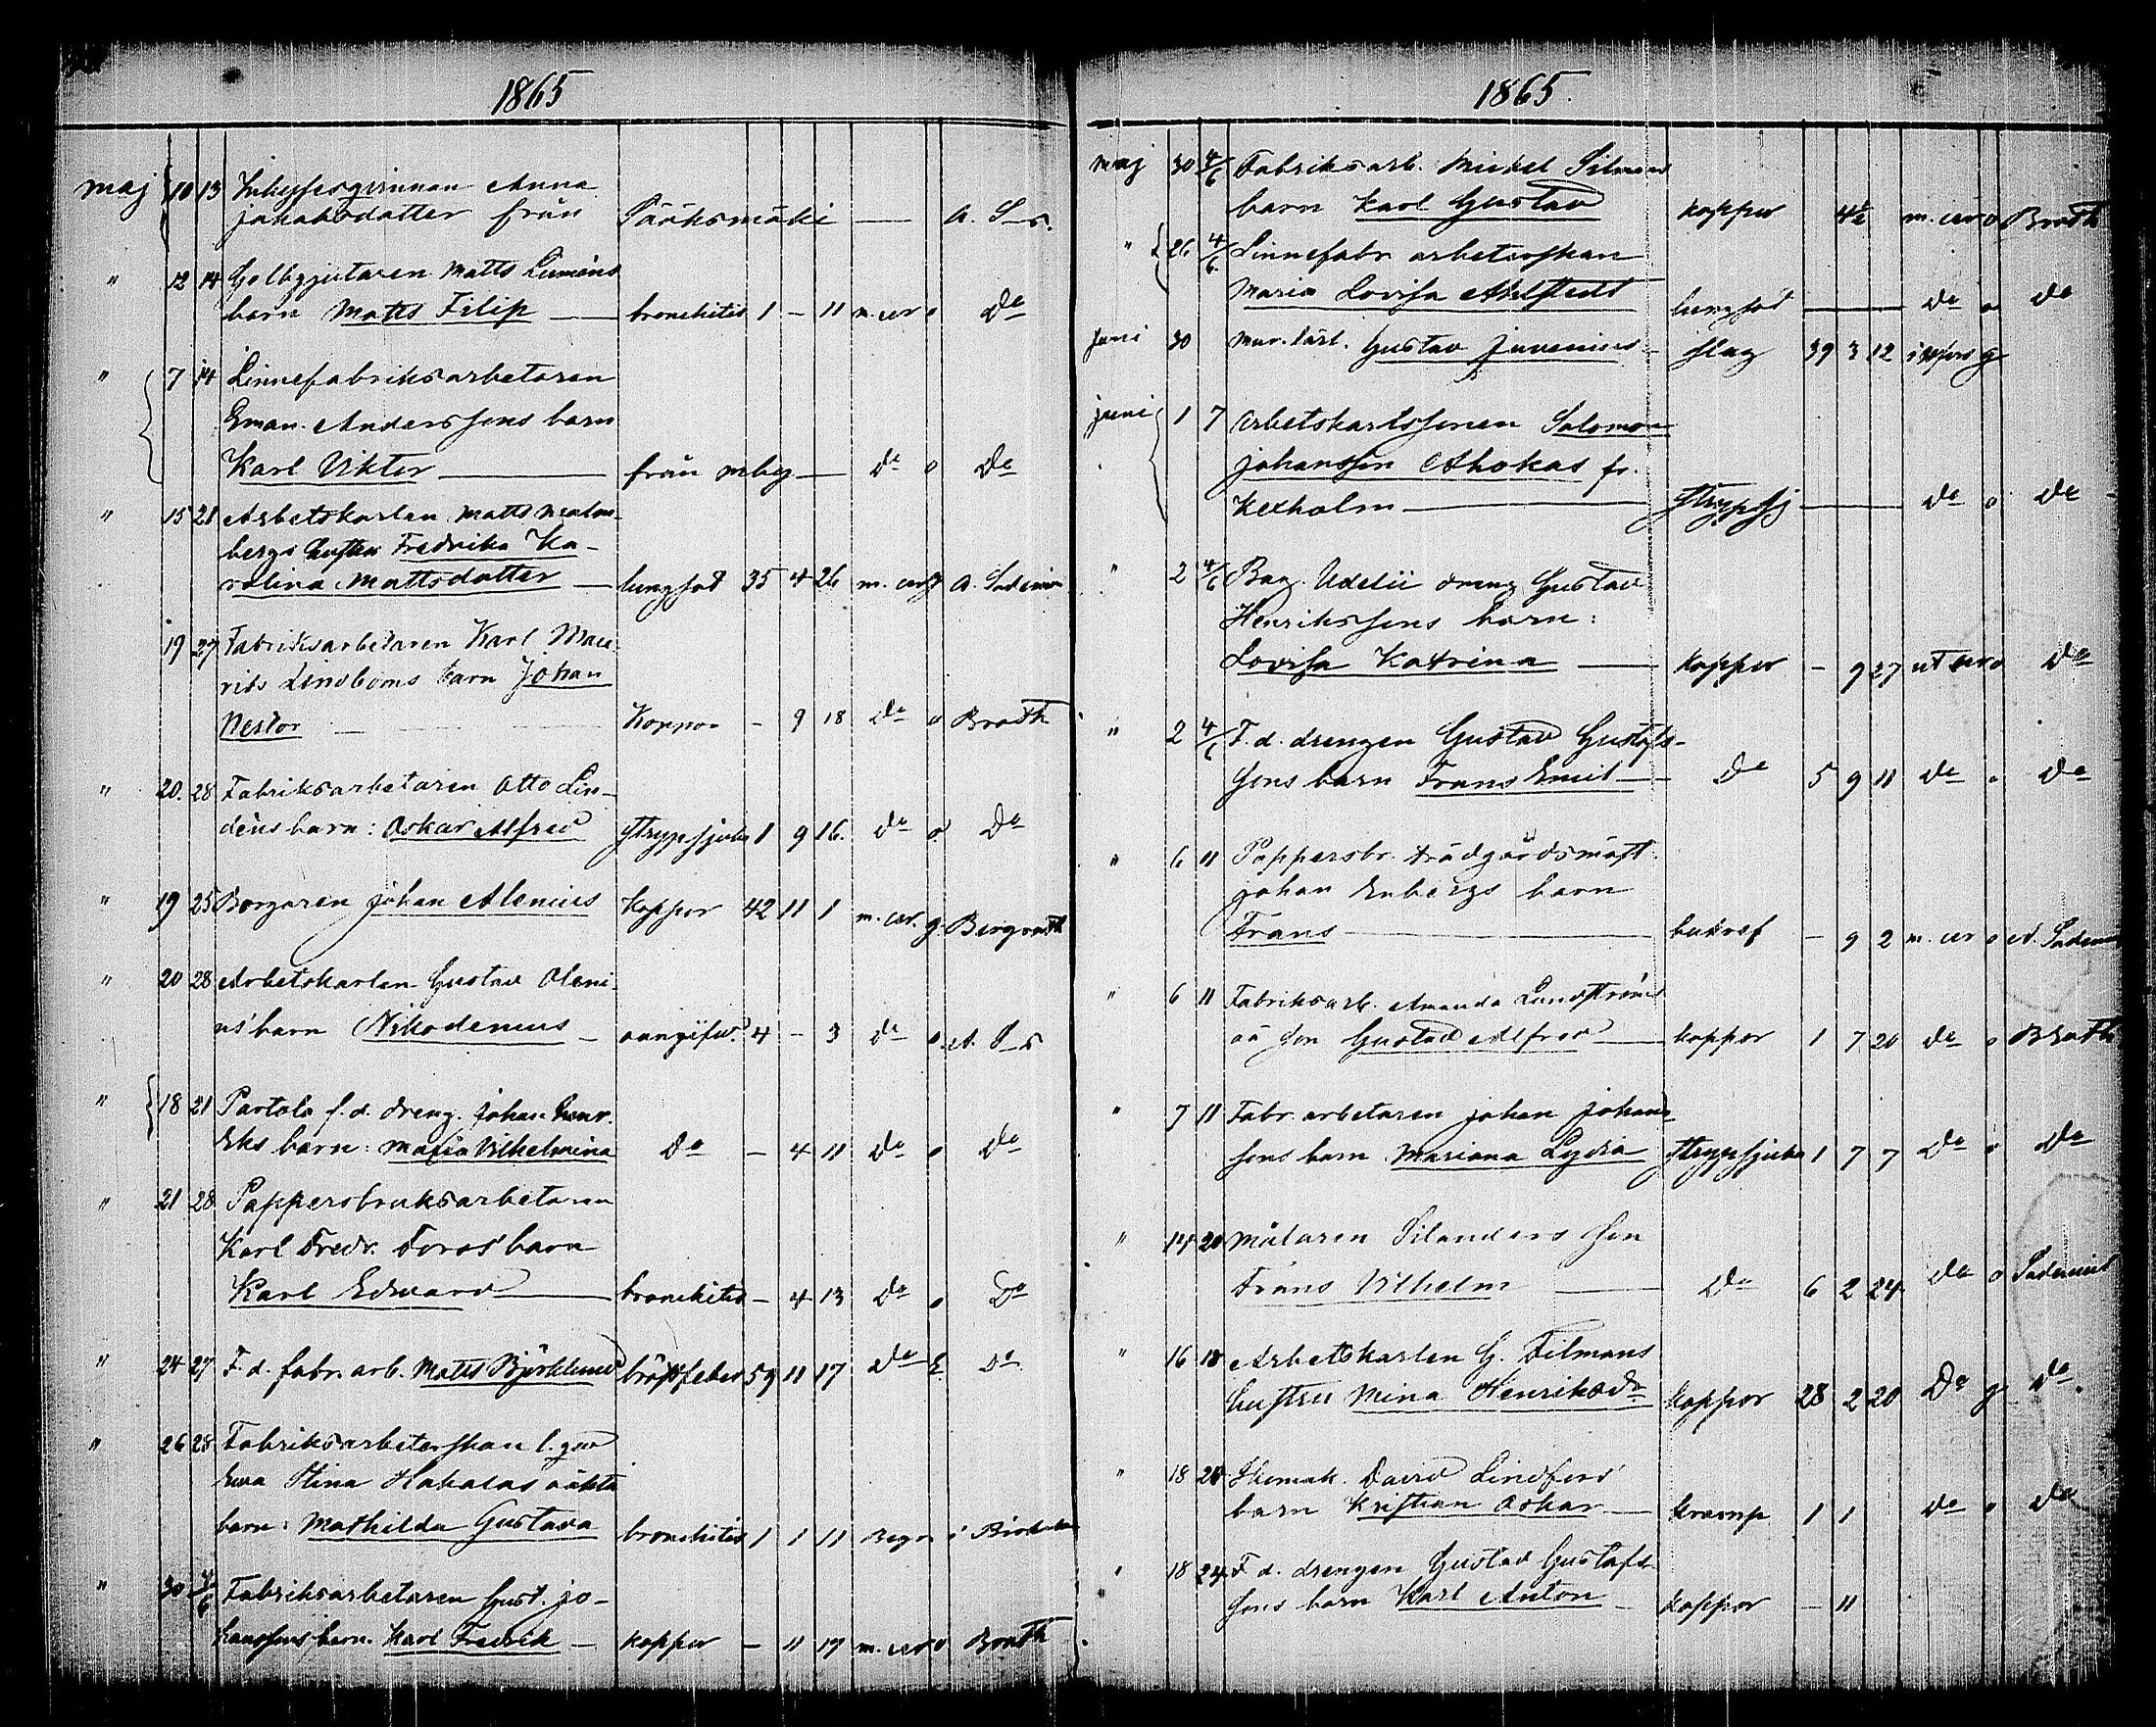 1865
maj 10 13 Inhysesqvinnan Anna
Jakobsdotter från Sääksmäki — A. S—s.
" 12 14 Gelbgjutaren Matts Lemåns
barn Matts Filip — bronchitis 1 — 11 m. cer o Do
" 7 14 Linnefabriksarbetaren
Eman. Anderssons barn
Karl Viktor — från mbg — Do o Do
" 15 21 Arbetskarlen Matts Malm-
bergs hustru Fredrika Ka-
rolina Mattsdotter — lungsot 35 4 26 m. cer g A.
19 27 Fabriksarbetaren Karl Mau-
rits Lindboms barn Johan
Nestor — Koppor — 9 18 Do o Broth
" 20. 28 Fabriksarbetaren Otto Lin-
déns barn: Oskar Alfred strypsjuka 1 9 16. Do o Do
" 19 25 Borgaren Johan Alenius Koppor 42 11 1 m. cer. g. Bergroth
" 20 28 Arbetskarlen Gustav Oleni-
us' barn Nikodemus — oangifv. 4 — 3 Do o A. S—s
" 18 21 Partola f. d. dreng. Johan Henr.
Eks barn: Maria Vilhelmina Do — 4 11 Do o Do
" 21 28 Pappersbruksarbetaren
Karl Fredr. Forss' barn
Karl Edvard — bronchitis — 4 13 Do o Do
" 24 27 F. d. fabr. arb. Matts Björklund bröstfeber 59 11 17 Do E. Do
" 26 28 Fabriksarbeterskan l. qv
Eva Stina Hakalas oäkta
barn: Mathilda Gustava bronchitis 1 1 11 Begr i
" 30 4/6 Fabriksarbetaren Gust. Jo-
hanssons barn. Karl Fredrik — koppor — 11 19 m. cer o Broth
1865.
maj 30 4/6 Fabriksarb. Mickel Silmans
barn Karl Gustav koppor 4½ m. cer o Broth
" 26 4/6. Linnefabr. arbeterskan
Maria Lovisa Ahlstedt lungsot — Do o Do
Juni 30 Mur. lärl. Gustav Juvenius — slag 39 3 12 g
juni 1 7 Arbetskarlssonen Salomon
Johansson Ahokas fr.
Kexholm — strypsj — Do o Do
" 2 4/6 Bag. Udelii dreng Gustav
Henrikssons barn:
Lovisa Katrina — Koppor — 9 27 ut cer o Do
" 2 4/6 F. d. drengen Gustav Gustafs-
sons barn Frans Emil — Do 5 9 11 Do o Do
" 6 11 Pappersbr. trädgårdsmäst.
Johan Enbergs barn
Frans — — 9 2 m. cer o A.
" 6 11 Fabriksarb. Amanda Lundströms
oä son Gustav Alfred — koppor 1 7 20 Do o Broth
" 7 11 Fabr. arbetaren Johan Johans-
sons barn Mariana Lydia strypsjuka 1 7 7 Do o Do
" 14 20 målaren Silanders son
Frans Vilhelm — Do 6 2 24 Do o
" 16 18 Arbetskarlen G. Filmans
hustru Mina Henriksdr koppor 28 2 20 Do g Do.
" 18 20 Skomak. David Lindfors'
barn Kristian Oskar — kramp 1 1 Do o Do
" 18 24 F. d. drengen Gustav Gustafs-
sons barn Karl Anton — koppor — 11